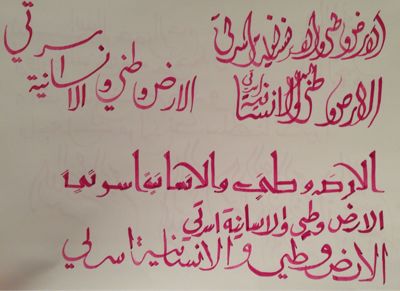 الارض وطني والانسانية اسرتي
الارض وطني والانسانية اسرتي
الارض وطني و الانسانية اسرتي
الارض وطني والانسانية اسرتي
الارض وطني والانسانية اسرتي
الارض وطني والانسانية اسرتي